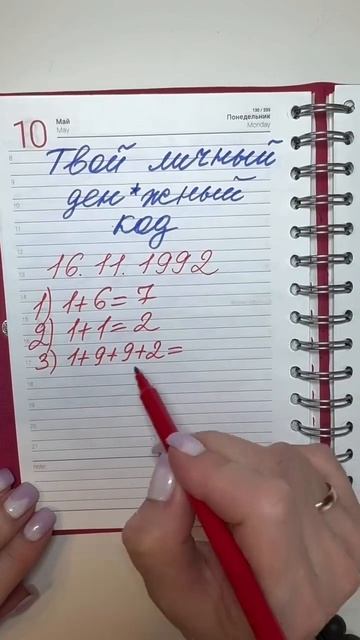 10
Май
May
130 / 235
Понедельник
Monday
Твой личный
ден*жный
код
16.11.1992
1) 1+6=7
2) 1+1=2
3) 1+9+9+2=